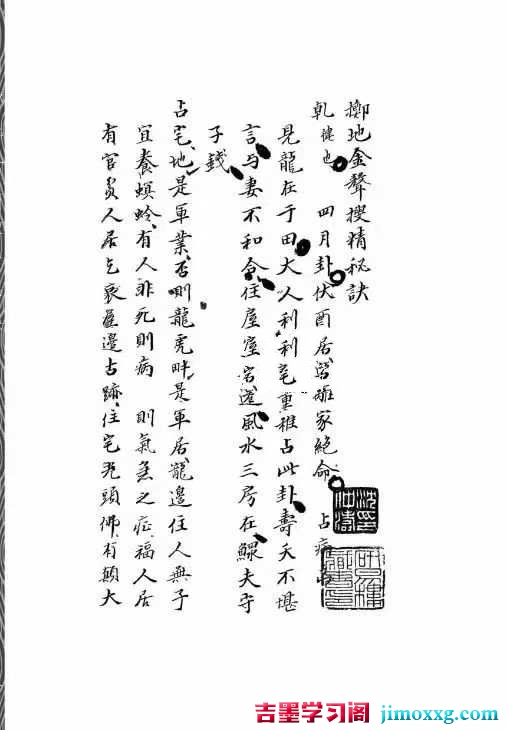 擲地金聲搜精秘訣
乾健也 四月卦伏酉居 家絕命 占病
見龍在于田大人利利宅重雅占此卦壽夭不堪
言与妻不和合住屋室宕 風水三房在鰥夫守
子錢
占宅地是軍業否則龍虎畔是軍居龍邊住人無子
宜養螟蛉有人非死則病 則氣急之症福人居
有官 人居 邊古跡住宅 頭佛有顛大
吉墨学习阁 jimoxxg.com